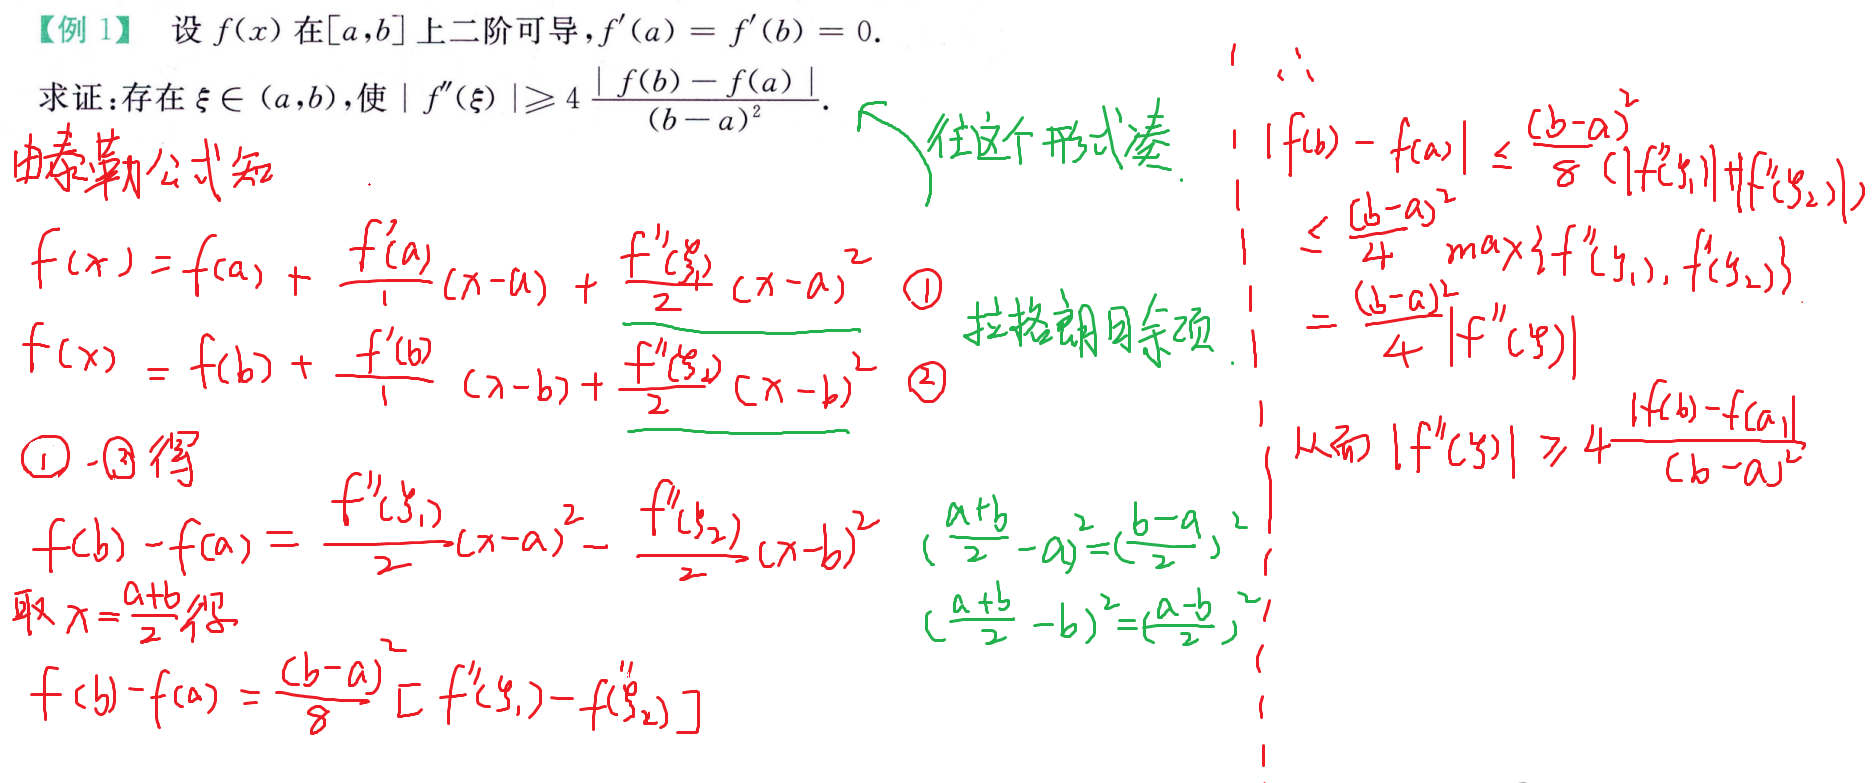 【例 1】 设 f(x) 在[a,b] 上二阶可导,f′(a) = f′(b) = 0.
求证:存在 ξ ∈ (a,b),使 | f″(ξ) | ≥ 4 | f(b) − f(a) | / (b − a)².
往这个形式凑.
由泰勒公式知
f(x) = f(a) + f′(a)/1 (x−a) + f″(ξ₁)/2 (x−a)² ①
f(x) = f(b) + f′(b)/1 (x−b) + f″(ξ₂)/2 (x−b)² ②
拉格朗日余项.
①-②得
f(b) − f(a) = f″(ξ₁)/2 (x−a)² − f″(ξ₂)/2 (x−b)²
(a+b/2 − a)² = (b−a/2)²
取 x = a+b/2 得
(a+b/2 − b)² = (a−b/2)²
f(b) − f(a) = (b−a)²/8 [f″(ξ₁) − f″(ξ₂)]
∴
|f(b) − f(a)| ≤ (b−a)²/8 (|f″(ξ₁)| + |f″(ξ₂)|)
≤ (b−a)²/4 max{f″(ξ₁), f″(ξ₂)}.
= (b−a)²/4 |f″(ξ)|
从而 |f″(ξ)| ≥ 4 |f(b)−f(a)| / (b−a)²